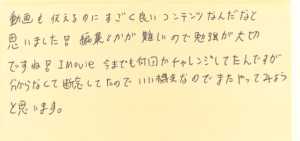 動画も伝えるのにすごく良いコンテンツなんだなと
思いました！！編集とかが難しいので勉強が大切
ですね！！IMovie 今までも何回かチャレンジしてたんですが
分からなくて断念してたのでいい機会なのでまたやってみよう
と思います。